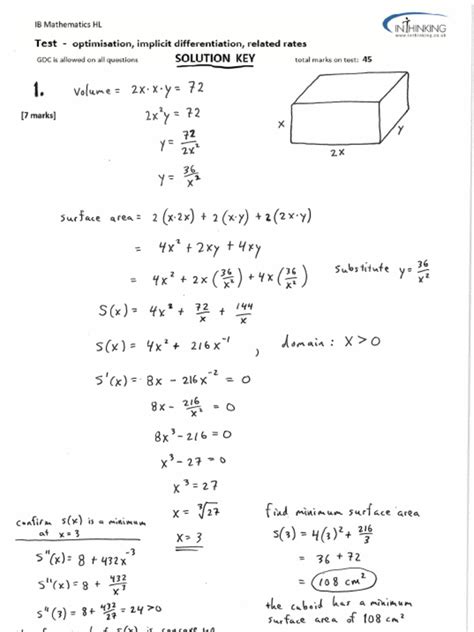 IB Mathematics HL
INTHINKING
www.inthinking.co.uk
Test - optimisation, implicit differentiation, related rates
GDC is allowed on all questions SOLUTION KEY total marks on test: 45
1. Volume = 2x·x·y = 72
[7 marks] 2x²y = 72
y = 72/2x²
y = 36/x²
x
y
2x
surface area = 2(x·2x) + 2(x·y) + 2(2x·y)
= 4x² + 2xy + 4xy
= 4x² + 2x(36/x²) + 4x(36/x²) substitute y = 36/x²
S(x) = 4x² + 72/x + 144/x
S(x) = 4x² + 216x⁻¹ , domain: x > 0
S'(x) = 8x - 216x⁻² = 0
8x - 216/x² = 0
8x³ - 216 = 0
x³ - 27 = 0
x³ = 27
x = ∛27
x = 3
confirm S(x) is a minimum
at x = 3
S"(x) = 8 + 432x⁻³
S"(x) = 8 + 432/x³
S"(3) = 8 + 432/27 = 24 > 0
find minimum surface area
S(3) = 4(3)² + 216/3
= 36 + 72
= 108 cm²
the cuboid has a minimum
surface area of 108 cm²